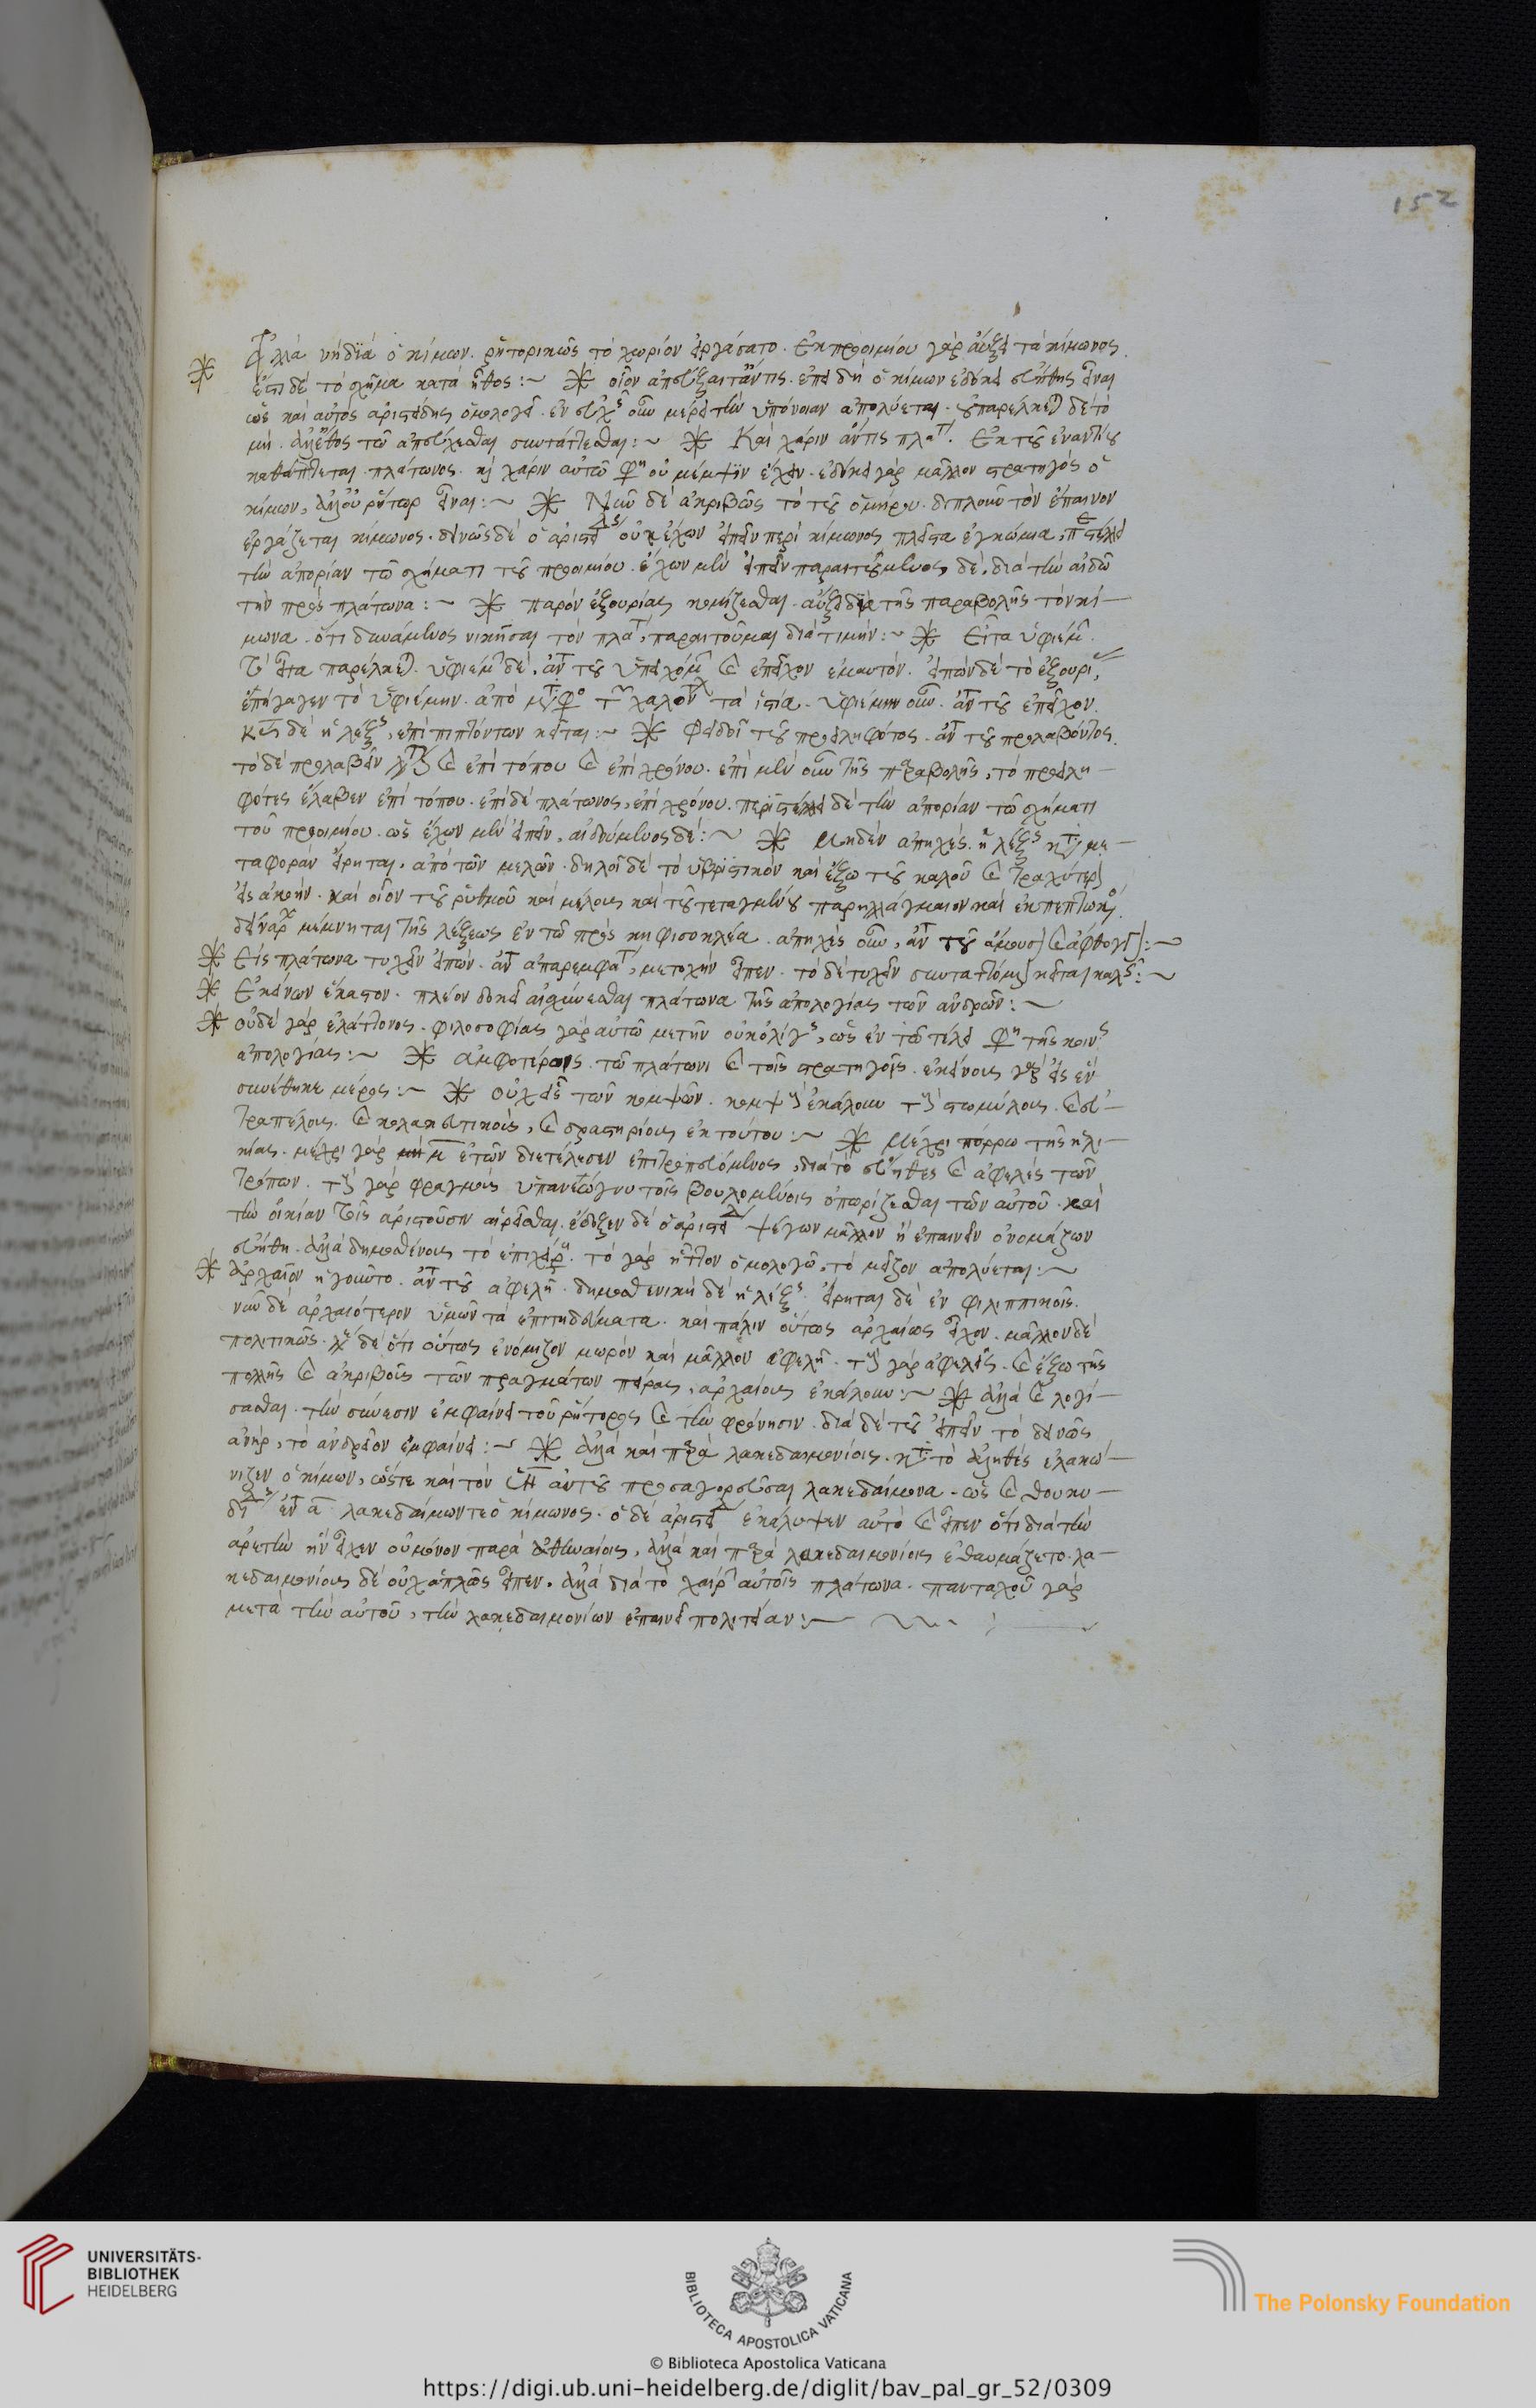 152
※ Ἀλλὰ νὴ δία ὁ κίμων. ῥητορικῶς τὸ χωρίον εἰργάσατο. ἐκ προοιμίου γὰρ αὔξει τὰ κίμωνος.
ἔστι δὲ τὸ σχῆμα κατὰ ἦθος :~ ※ οἷον ἀπεύξαιτ' ἄν τις. ἐπειδὴ ὁ κίμων ἐδόκει εὐήθης εἶναι
ὡς καὶ αὐτὸς ἀριστείδης ὁμολογεῖ. ἐν οὖν μέρει τὴν ὑπόνοιαν ἀπολύεται. παρέλκει δὲ τὸ
μή. ἔθος τῶ ἀπεύχεσθαι συντάττεσθαι :~ ※ Καὶ χάριν ἄν τις πλατ. Ἐκ τοῦ ἐναντίου
καθάπτεται πλάτωνος. καὶ χάριν αὐτῶ φη οὐ μέμψιν ἔχειν. ἐδόκει γὰρ μᾶλλον στρατηγὸς ὁ
κίμων, ἀλλ' οὐ ῥήτωρ εἶναι :~ ※ Νῦν δὲ ἀκριβῶς τὸ τοῦ ὁμήρου. διπλοῦν τὸν ἔπαινον
ἐργάζεται κίμωνος. δεινῶς δὲ ὁ ἀριστεί οὐκ ἔχων εἰπεῖν περὶ κίμωνος πλεῖστα ἐγκώμια, περιστέλλει
τὴν ἀπορίαν τῶ σχήματι τοῦ προοιμίου. ἔχων μὲν εἰπεῖν παραιτούμενος δὲ, διὰ τὴν αἰδῶ
τὴν πρὸς πλάτωνα :~ ※ παρὸν ἐξουρίας κομίζεσθαι. αὔξει διὰ τῆς παραβολῆς τὸν κί-
μωνα. ὅτι δυνάμενος νικῆσαι τὸν πλατ, παραιτοῦμαι διὰ τιμήν :~ ※ Εἶτα ὑφιέμ.
τὸ εἶτα παρέλκει. ὑφιέμ δὲ, ἀντ τοῦ ὑπειχόμ καὶ ἐπεῖχον ἐμαυτόν. εἰπὼν δὲ τὸ ἐξουρί,
ἐπήγαγεν τὸ ὑφιέμην. ἀπὸ μεταφο τῶν χαλόντ τὰ ἱστία. ὑφιέμην οὖν. ἀντ τοῦ ἐπεῖχον.
δὲ ἡ λέξ, ἐπὶ πιπτόντων κεῖται :~ ※ Φείδοι τοῦ προειληφότος. ἀντ τοῦ προλαβόντος.
τὸ δὲ προλαβεῖν καὶ ἐπὶ τόπου καὶ ἐπὶ χρόνου. ἐπὶ μὲν οὖν τῆς παραβολῆς, τὸ προειλη-
φότες ἔλαβεν ἐπὶ τόπου. ἐπὶ δὲ πλάτωνος, ἐπὶ χρόνου. περιστέλλει δὲ τὴν ἀπορίαν τῶ σχήματι
τοῦ προοιμίου. ὡς ἔχων μὲν εἰπεῖν, αἰδούμενος δέ :~ ※ μηδὲν ἀπηχές. ἡ λέξ κατ με-
ταφορὰν εἴρηται, ἀπὸ τῶν μελῶν. δηλοῖ δὲ τὸ ὑβριστικὸν καὶ ἔξω τοῦ καλοῦ καὶ τραχύτερ
εἰς ἀκοήν. καὶ οἷον τοῦ ῥυθμοῦ καὶ μέλους καὶ τοῦ τεταγμένου παρηλλαγμένον καὶ ἐκπεπτωκ.
δείναρχ μέμνηται τῆς λέξεως ἐν τῶ πρὸς κηφισοκλέα. ἀπηχὲς οὖν, ἀντ τοῦ ἄμουσ καὶ ἄφθογγ :~
※ Εἰς πλάτωνα τυχεῖν εἰπών. ἀντ ἀπαρεμφατ, μετοχὴν εἶπεν. τὸ δὲ τυχεῖν συνταττόμε κεῖται καλ :~
※ Ἐκείνων ἕκαστον. πλέον δοκεῖ αἰσχύνεσθαι πλάτωνα τῆς ἀπολογίας τῶν ἀνδρῶν :~
※ οὐδὲ γὰρ ἐλάττονος. φιλοσοφίας γὰρ αὐτῶ μετῆν οὐκ ὀλίγ, ὡς ἐν τῶ τέλει φη τῆς κοιν
ἀπολογίας :~ ※ ἀμφοτέροις. τῶ πλάτωνι καὶ τοῖς στρατηγοῖς. ἐκείνοις γὰρ εἰς ἓν
συνέθηκε μέρος :~ ※ οὐχ εἷς τῶν κομψῶν. κομψοὺς ἐκάλουν τοὺς στωμύλους. καὶ εὐ-
τραπέλους. καὶ κολακευτικοὺς, καὶ ἐκ τούτου :~ ※ μέχρι πόρρω τῆς ἡλι-
κίας. μέχρι γὰρ μ ἐτῶν διετέλεσεν ἐπιτροπευόμενος, διὰ τὸ εὔηθες καὶ ἀφελὲς τῶν
τρόπων. τοὺς γὰρ φραγμοὺς ὑπανεώγνυ τοῖς βουλομένοις ὀπωρίζεσθαι τῶν αὐτοῦ. καὶ
τὴν οἰκίαν τοῖς ἀριστοῦσιν αἱρεῖσθαι. ἔδοξεν δὲ ὁ ἀριστεί ψέγων μᾶλλον ἢ ἐπαινεῖν ὀνομάζων
εὐήθη. ἀλλὰ δημοσθένους τὸ ἐπιχείρη. τὸ γὰρ ἧττον ὁμολογῶ, τὸ μεῖζον ἀπολύεται :~
※ ἀρχαῖον ἡγοῦντο. ἀντ τοῦ ἀφελῆ. δημοσθενικὴ δὲ ἡ λέξ. εἴρηται δὲ ἐν φιλιππικοῖς.
νῦν δὲ ἀρχαιότερον ὑμῶν τὰ ἐπιτηδεύματα. καὶ πάλιν οὕτως ἀρχαίως εἶχον. μᾶλλον δὲ
πολιτικῶς. δὲ ὅτι οὕτως ἐνόμιζον μωρὸν καὶ μᾶλλον ἀφελῆ. τοὺς γὰρ ἀφελεῖς. καὶ ἔξω τῆς
πολλῆς καὶ ἀκριβοῦς τῶν πραγμάτων πείρας, ἀρχαίους ἐκάλουν :~ ※ ἀλλὰ καὶ λογί-
σασθαι. τὴν σύνεσιν ἐμφαίνει τοῦ ῥήτορος καὶ τὴν φρόνησιν. διὰ δὲ τοῦ εἰπεῖν τὸ δεινῶς
ἀνήρ, τὸ ἀνδρεῖον ἐμφαίνει :~ ※ ἀλλὰ καὶ παρὰ λακεδαιμονίοις. κατ τὸ ἀληθὲς ἐλακώ-
νιζεν ὁ κίμων, ὥστε καὶ τὸν αὐτοῦ προσαγορεῦσαι λακεδαίμονα. ὡς καὶ θουκυ-
δί ἐν α λακεδαίμων τε ὁ κίμωνος. ὁ δὲ ἀριστεί ἐκάλυψεν αὐτὸ καὶ εἶπεν ὅτι διὰ τὴν
ἀρετὴν ἣν εἶχεν οὐ μόνον παρὰ ἀθηναίοις, ἀλλὰ καὶ παρὰ λακεδαιμονίοις ἐθαυμάζετο. λα-
κεδαιμονίους δὲ οὐχ ἁπλῶς εἶπεν, ἀλλὰ διὰ τὸ χαίρ αὐτοῖς πλάτωνα. πανταχοῦ γὰρ
μετὰ τὴν αὐτοῦ, τὴν λακεδαιμονίων ἐπαινεῖ πολιτείαν :~
UNIVERSITÄTS-
BIBLIOTHEK
HEIDELBERG
BIBLIOTECA APOSTOLICA VATICANA
The Polonsky Foundation
© Biblioteca Apostolica Vaticana
https://digi.ub.uni-heidelberg.de/diglit/bav_pal_gr_52/0309